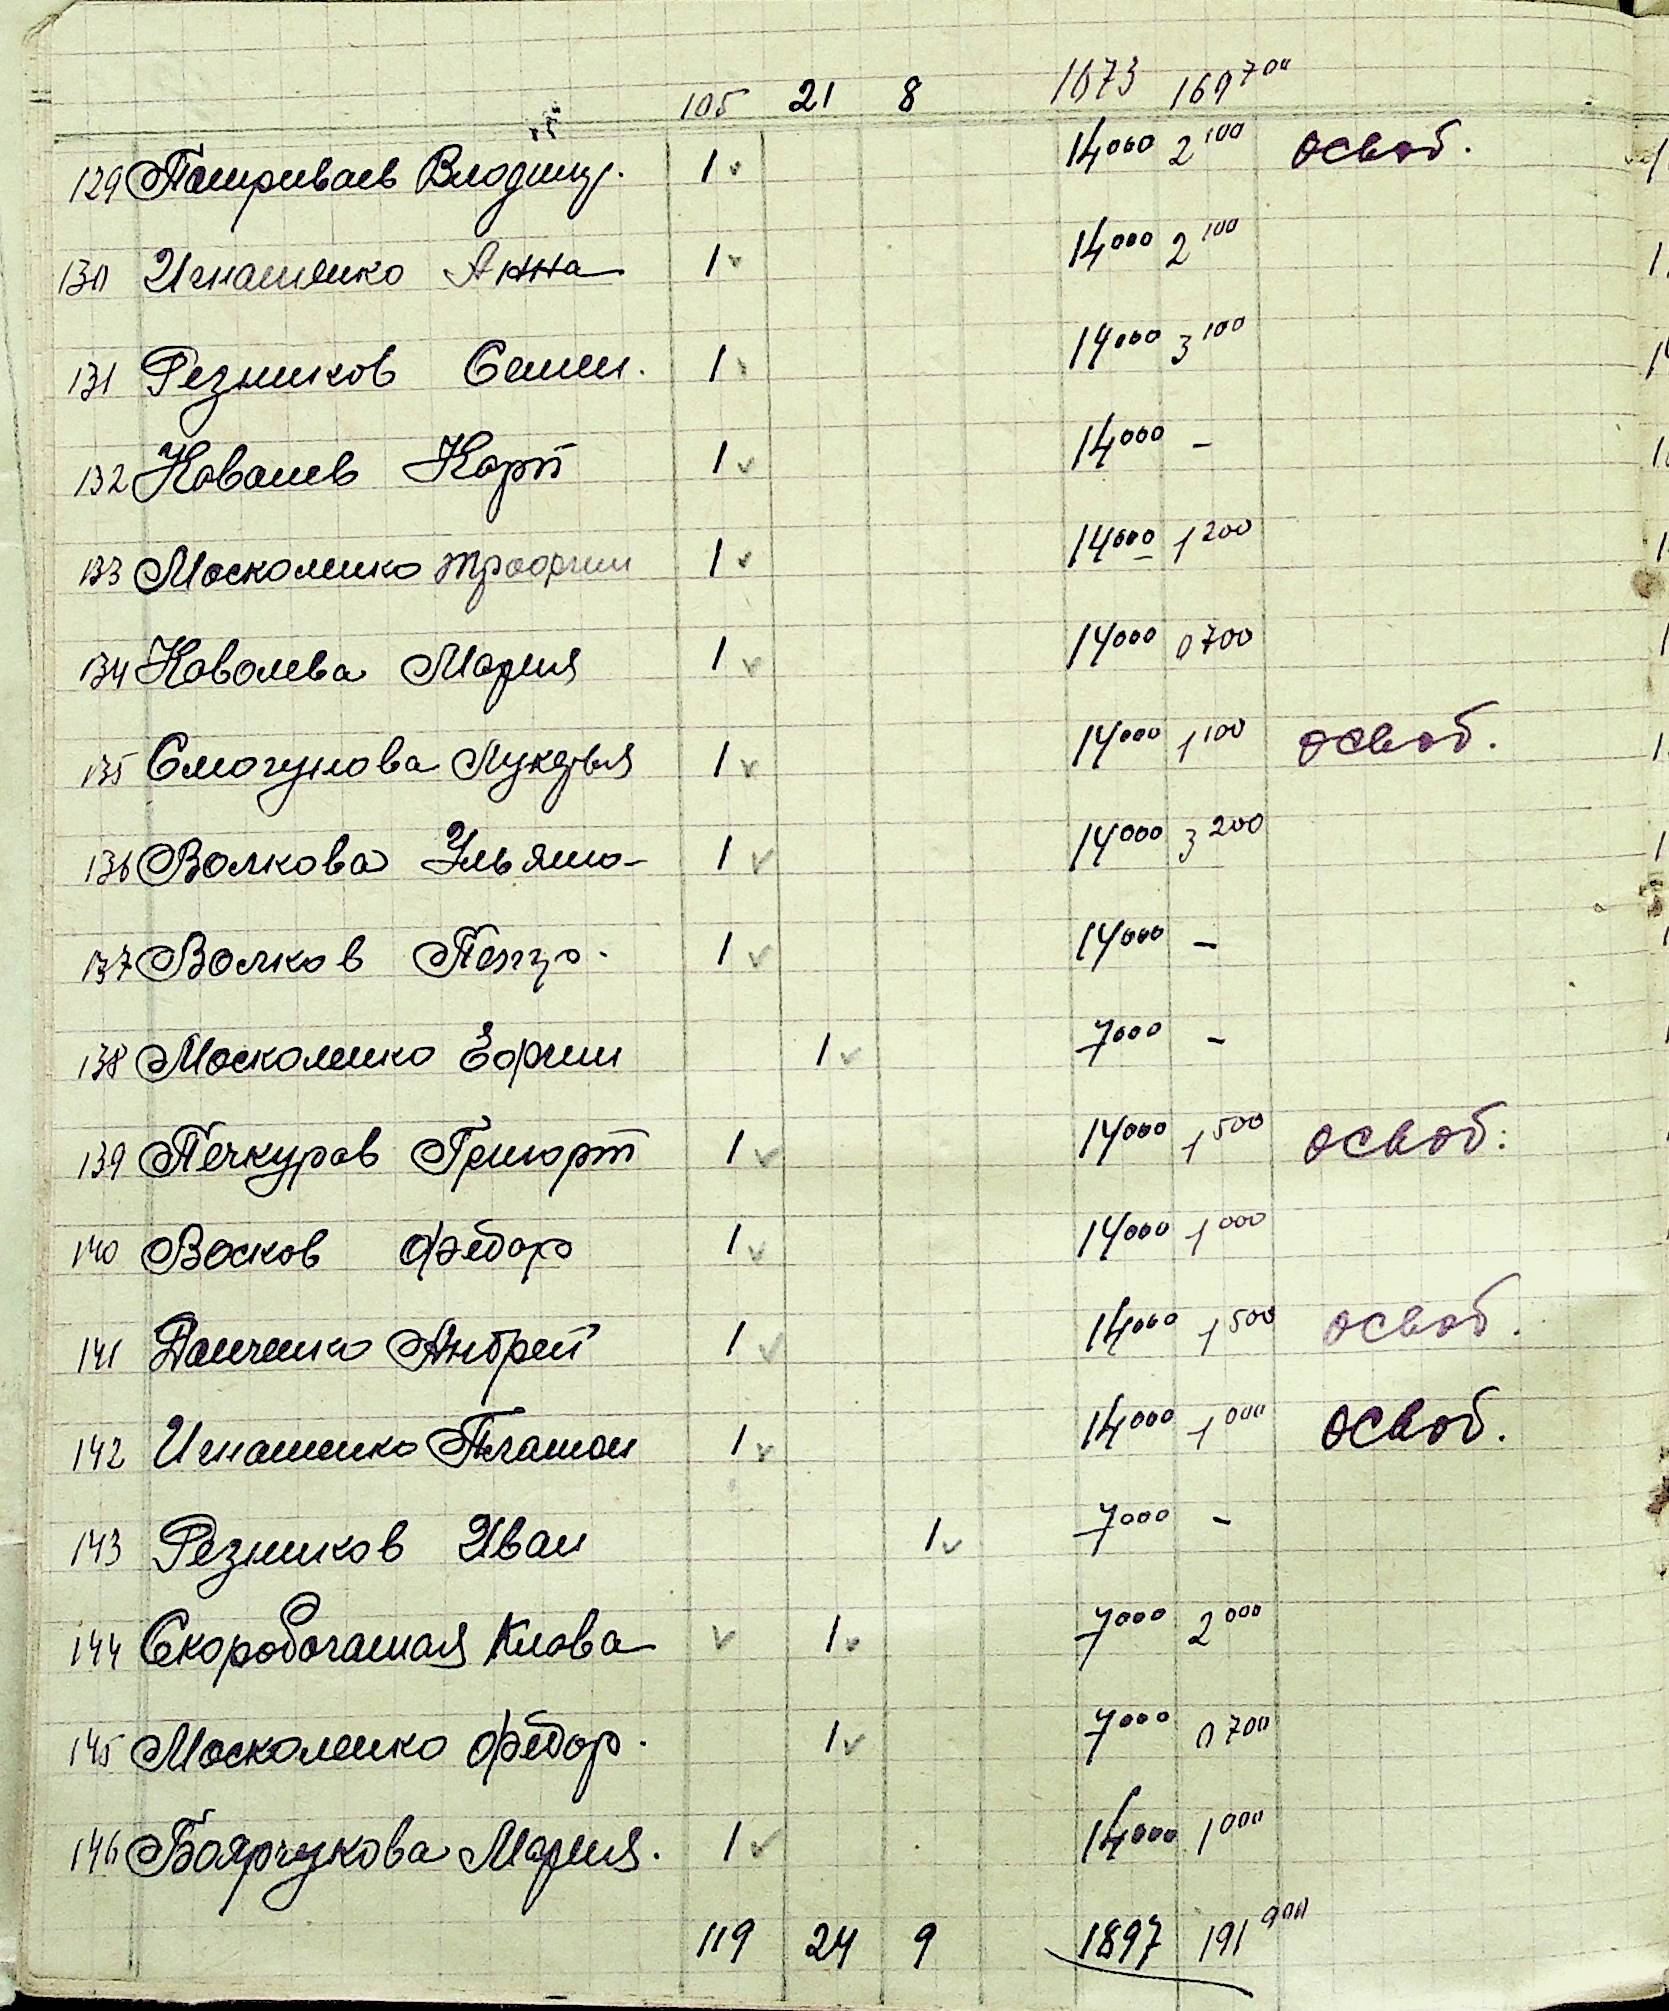 105 21 8 1673 169 700
129 Патриваев Владимир. 1 14000 2 100 освоб.
130 Игнатенко Анна 1 14000 2 100
131 Резников Семен. 1 14000 3 100
132 Ковалев Карп 1 14000 –
133 Москаленко Трофим 1 14000 1 200
134 Ковалева Мария 1 14000 0 700
135 Смогунова Лукерья 1 14000 1 100 освоб.
136 Волкова Ульяна 1 14000 3 200
137 Волков Петро. 1 14000 –
138 Москаленко Ефим 1 7000 –
139 Печкуров Григорий 1 14000 1 500 освоб.
140 Восков Федор 1 14000 1 000
141 Данченко Андрей 1 14000 1 500 освоб.
142 Игнатенко Платон 1 14000 1 000 освоб.
143 Резников Иван 1 7000 –
144 Скоробогатая Клава 1 7000 2 000
145 Москаленко Федор. 1 7000 0 700
146 Боярчукова Мария. 1 14000 1 000
119 24 9 1897 191 900